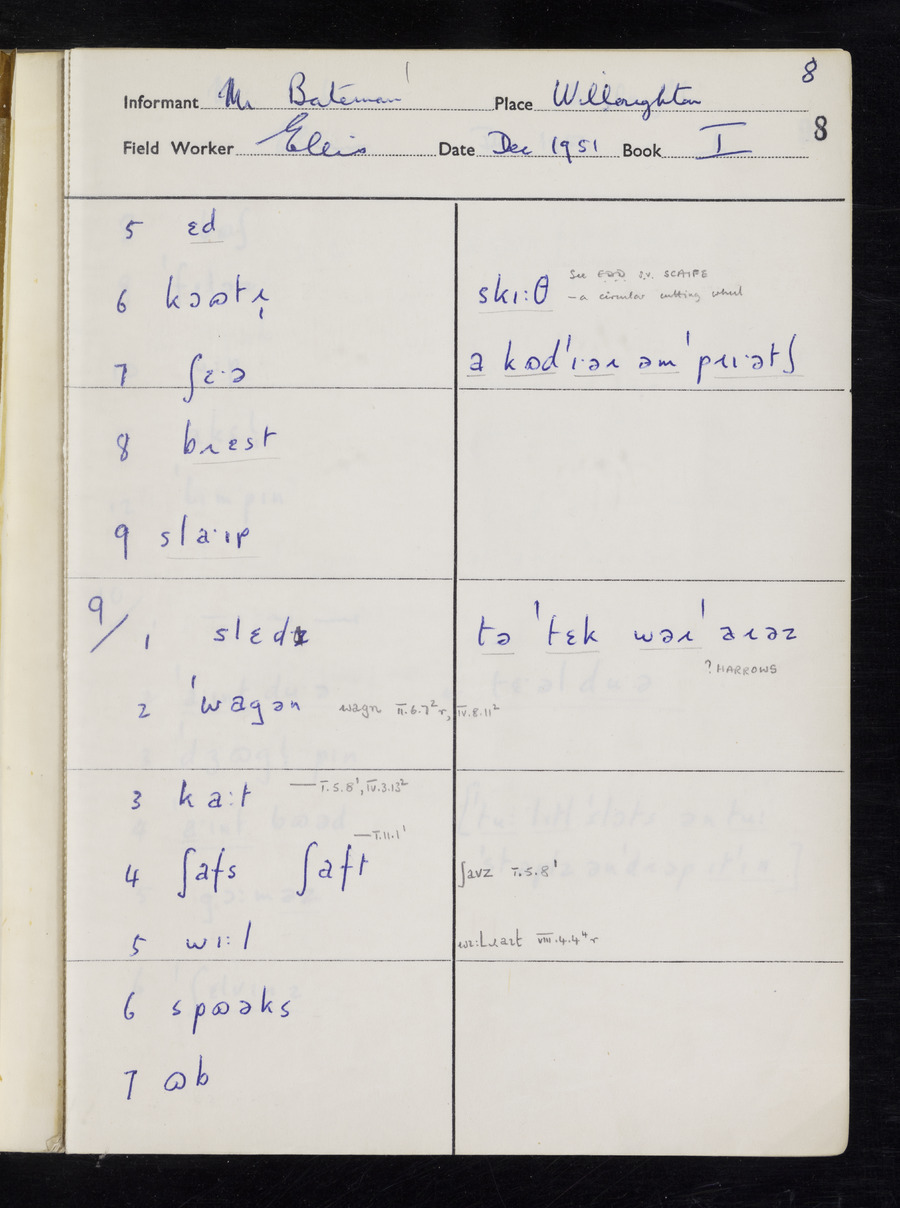 8
Informant Mr Bateman 1 Place Willoughton
Field Worker Ellis Date Dec 1951 Book I 8
5 ɛd
6 kɔɷtɹ̩ skɪ:θ See EDD s.v. SCAIFE
– a circular cutting wheel
7 ʃɛ·ə a kɷd'ɪ·əɹ əm 'pɹɪ·ətʃ
8 bɹɛst
9 sla·ɪp
9/1 slɛd tə 'tɛk wəɹ 'aɹəz
? HARROWS
2 'wagən wagn II.6.7² r, IV.8.11²
3 ka:t — I.5.8¹, IV.3.13²
— I.11.1¹
4 ʃafs ʃaft ʃavz I.5.8¹
5 wɪ:l wɪ:lɹaɪt VIII.4.4⁴ r
6 spɷəks
7 ɷb